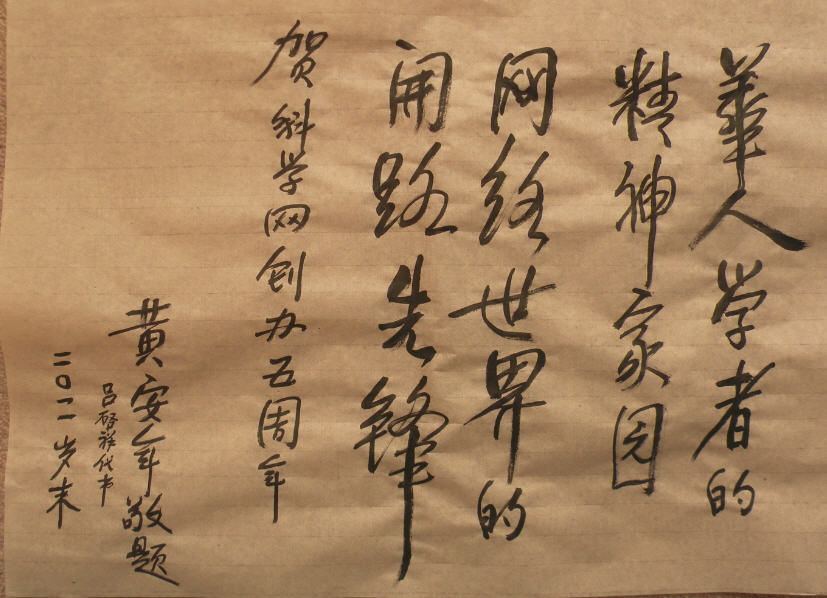 華人学者的
精神家园
网络世界的
开路先锋
贺科学网创办五周年
黄安年敬题
吕启祥代书
二〇一一岁末